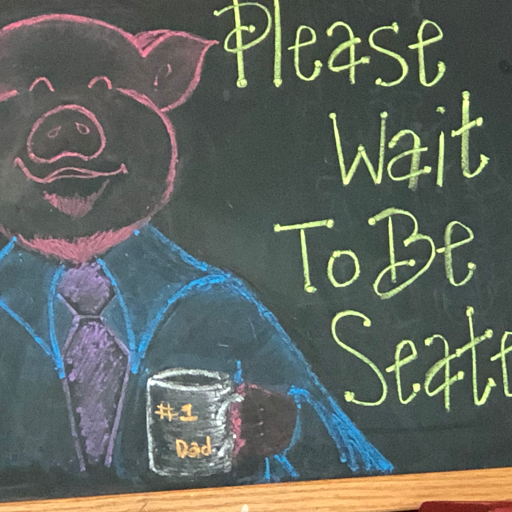 Please
Wait
To Be
Seate
#1
Dad